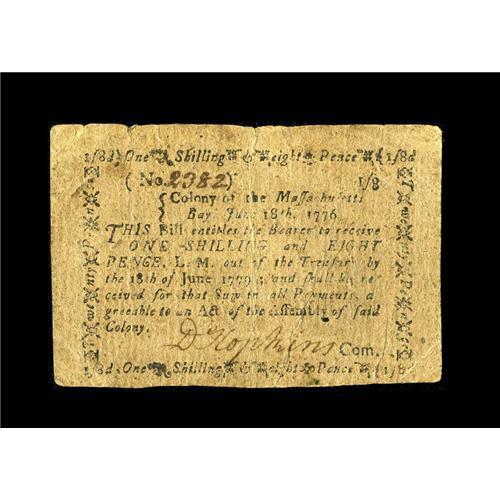 1/8d One Shilling & eight Pence 1/8d
(No. 2382) 1/8
Colony of the Massachusetts
Bay, June 18th, 1776.
THIS Bill entitles the Bearer to receive
ONE SHILLING and EIGHT
PENCE, L. M. out of the Treasury by
the 18th of June 1779, and shall be re-
ceived for that Sum in all Payments, a-
greeable to an Act of the Assembly of said
Colony.
D Hopkins Com.
1/8d One Shilling & eight Pence 1/8
Twenty Pence
Twenty Pence